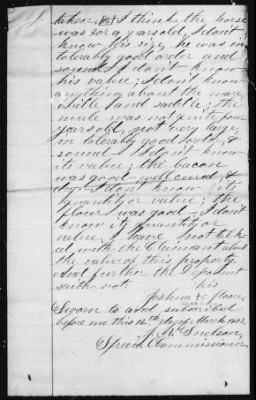 taken, I think the horse
was 3 or 4 years old, I don't
know his size, he was in
tolerably good order and
sound I don't know
his value; I don't know
anything about the mare,
bridle and saddle; the
mule was not quite four
years old, not very large,
in tolerably good order, &
sound I don't know
its value; the bacon
was good well cured &
I don't know its
quantity or value; the
flour was good I don't
know its quantity or
value, I have not talk
ed with the Claimant about
the value of this property
And further the Deponent
saith not his
Joshua Moore
mark
Sworn to and subscribed
before me this 12th day of March 1877,
Snelson,
Special Commissioner